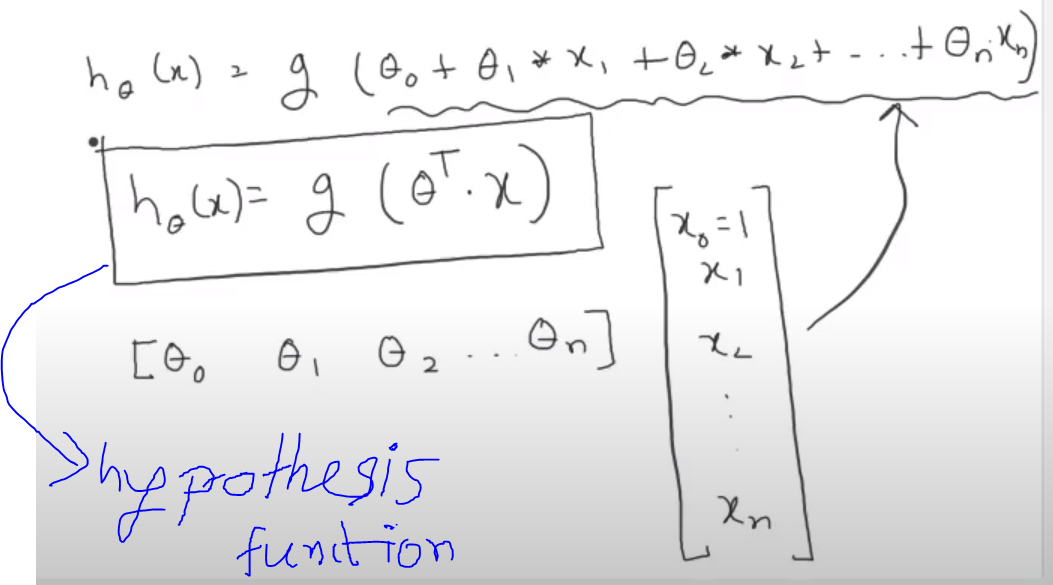 h_θ (x) = g (θ₀ + θ₁ * x₁ + θ₂ * x₂ + - ... + θₙ xₙ)
h_θ(x) = g (θᵀ . x)
[θ₀ θ₁ θ₂ ... θₙ]
x₀ = 1
x₁
x₂
⋮
xₙ
hypothesis
function